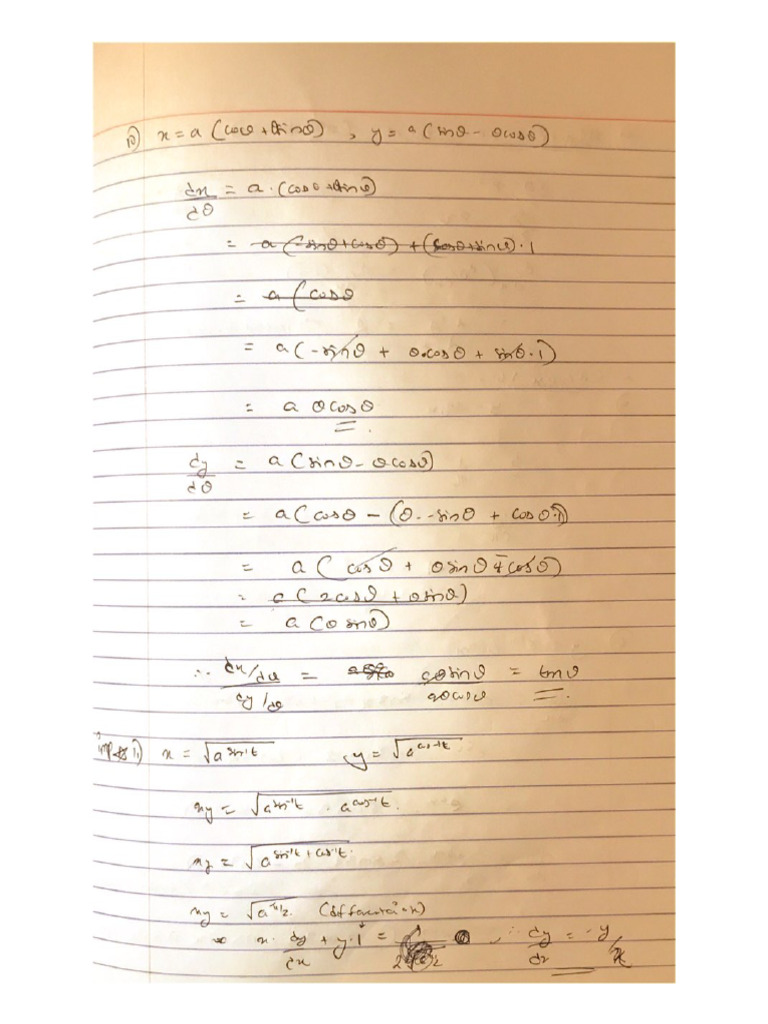 10) x = a (cosθ + θsinθ) , y = a (sinθ - θcosθ)
dx/dθ = a · (cosθ + θsinθ)
= a(-sinθ + cosθ) + (cosθ + sinθ)·1
= a (cosθ
= a (-sinθ + θ·cosθ + sinθ·1)
= a θcosθ
dy/dθ = a (sinθ - θcosθ)
= a (cosθ - (θ·-sinθ + cosθ·1)
= a ( cosθ + θsinθ - cosθ)
= a (2cosθ + θsinθ)
= a (θ sinθ)
∴ dx/dθ / dy/dθ = aθsinθ / aθcosθ = tanθ
imp 11) x = √a^sin⁻¹t y = √a^cos⁻¹t
xy = √a^sin⁻¹t · a^cos⁻¹t
xy = √a^sin⁻¹t + cos⁻¹t
xy = √a^π/2 (differentiation)
x · dy/dx + y·1 = ∴ dy/dx = -y/x